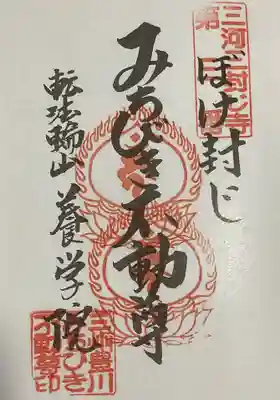 三河 封じ寺
第
ぼけ封じ
みちびき不動尊
転法輪山 養学院
三州豊川
みちびき
不動尊印